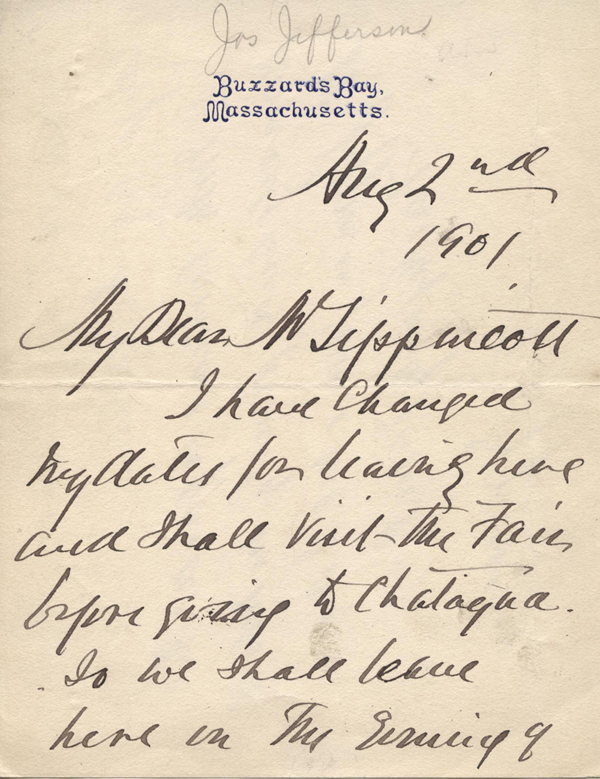 Jos Jefferson
Buzzard's Bay,
Massachusetts.
Aug 2nd
1901
My Dear Mr Lippincott
I have Changed
my dates for leaving here
and shall visit the Fair
before going to Chataqua.
So we shall leave
here on the Evening of